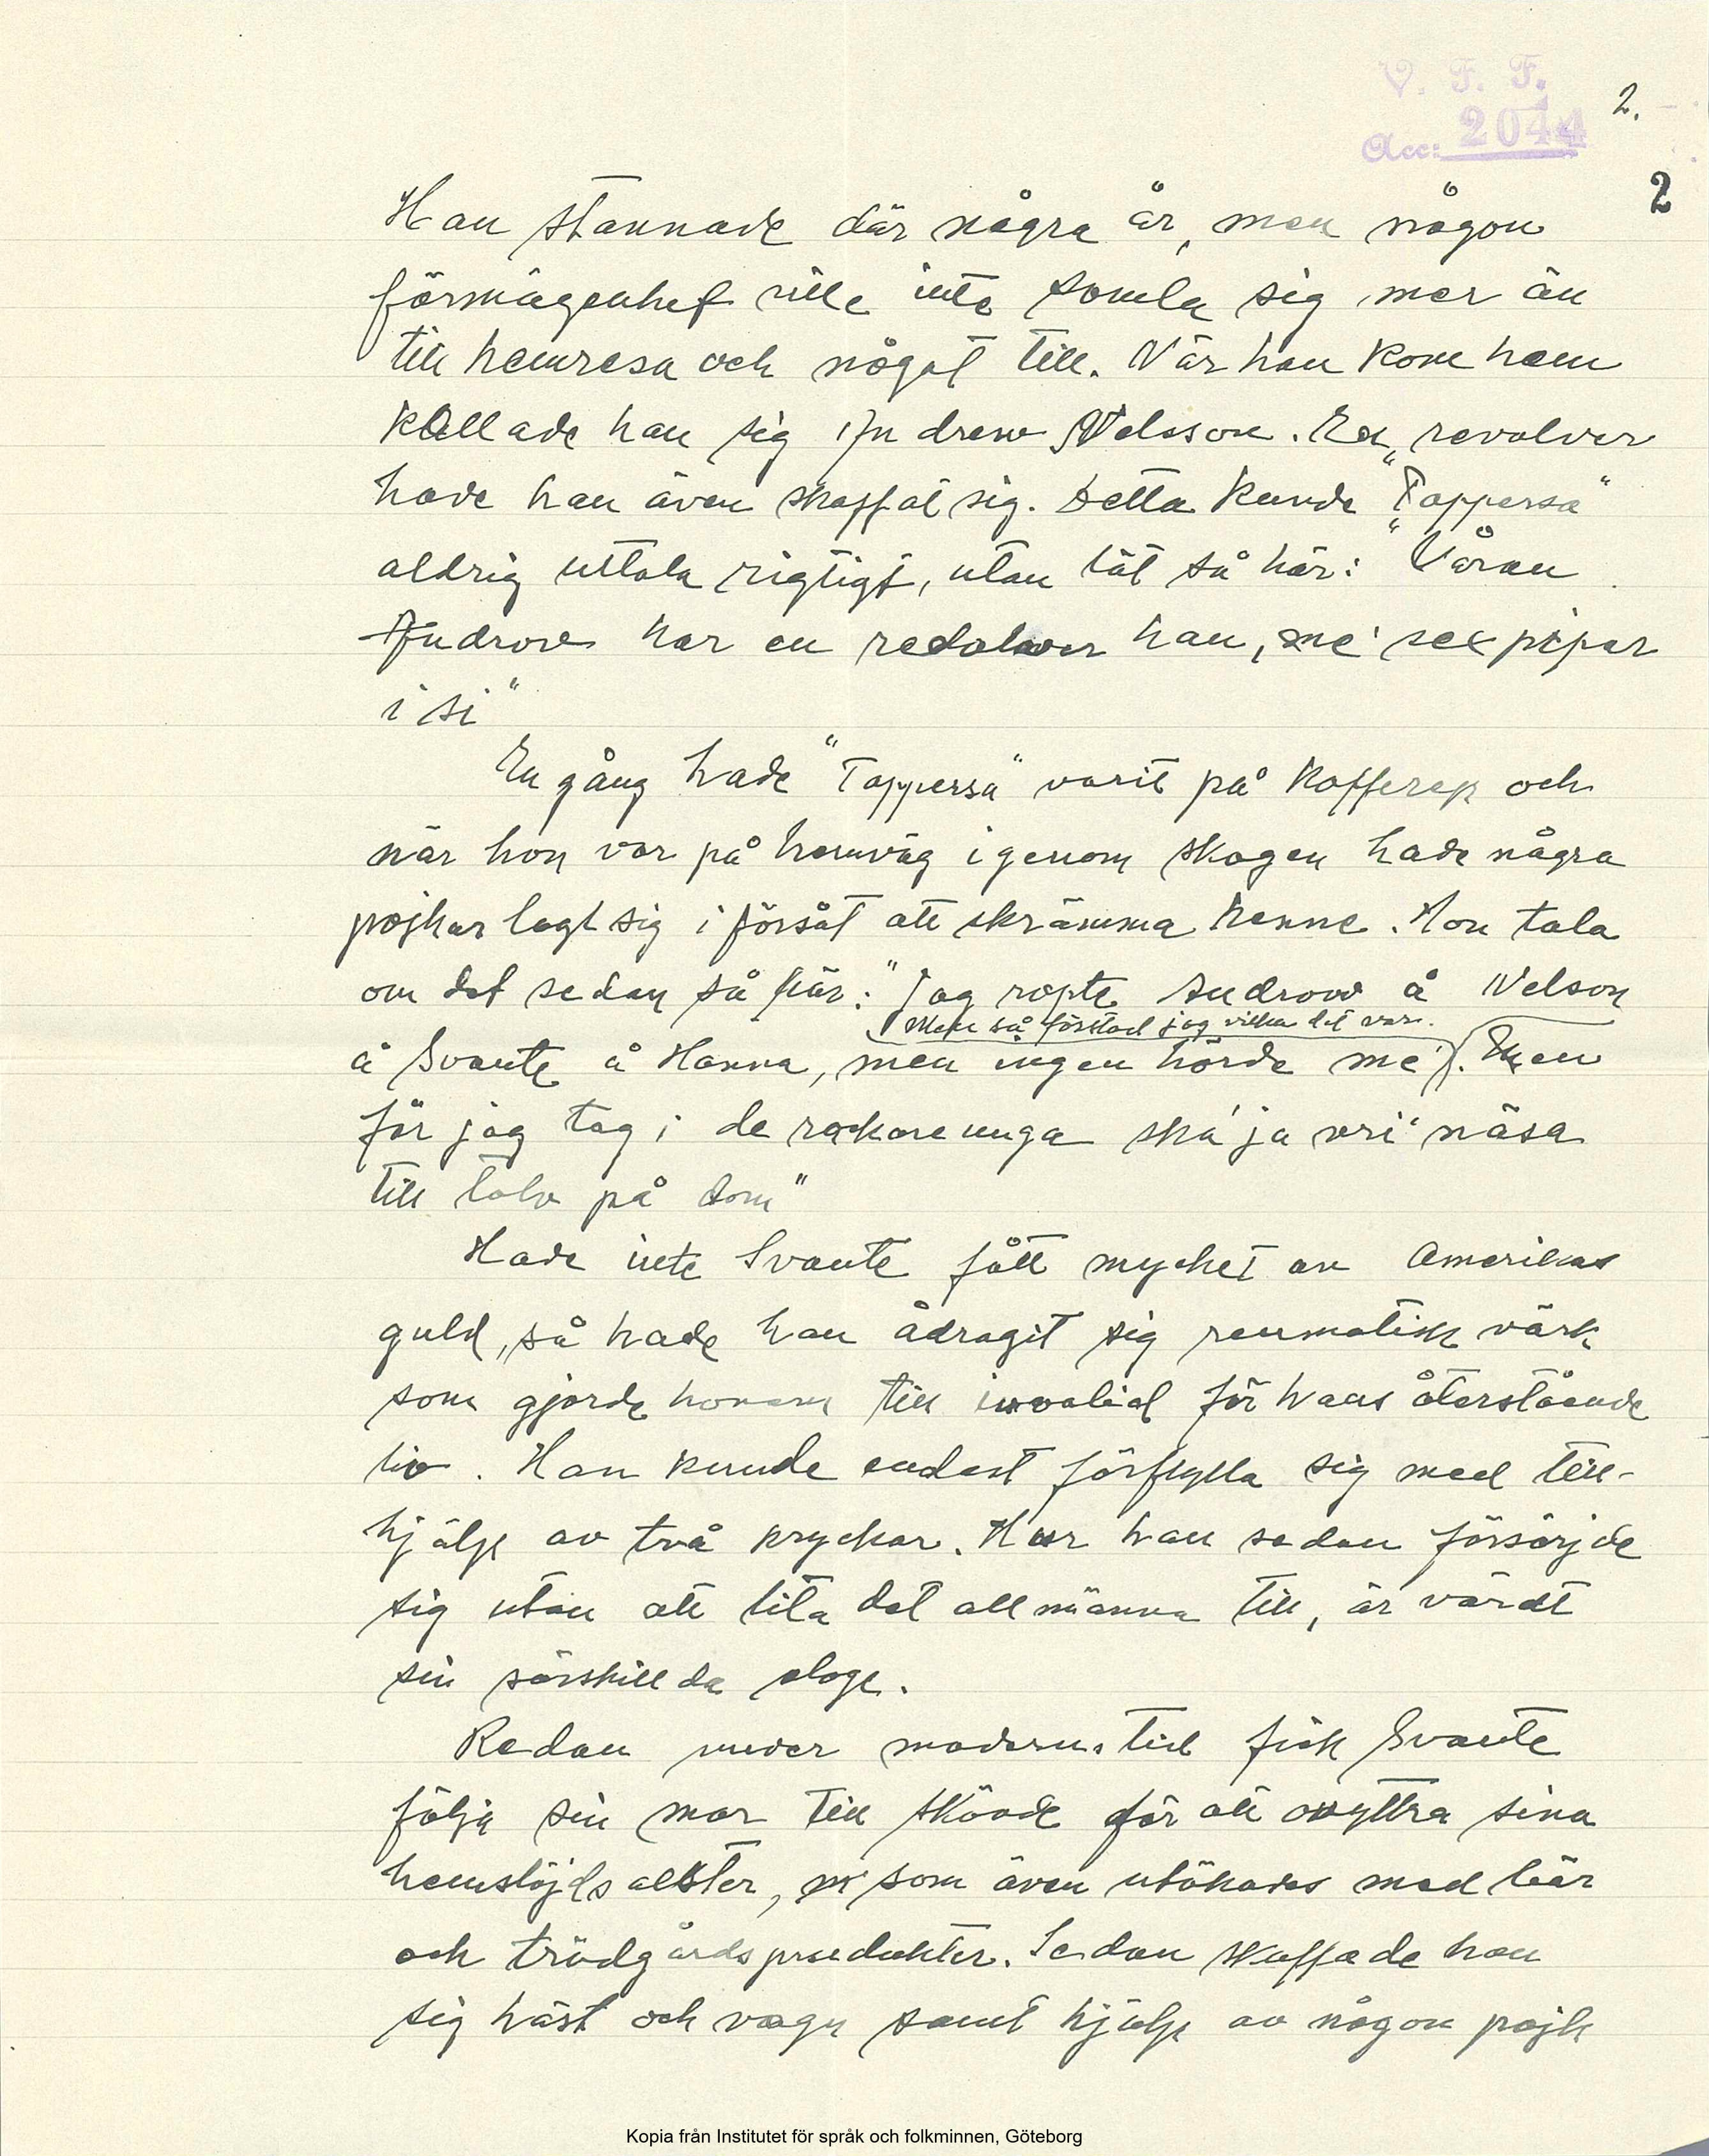 V. F. F.
Acc: 2044
2.
2
Han stannade där några år, men någon
förmögenhet ville inte samla sig mer än
till hemresa och något till. När han kom hem
kallade han sig Andrew Nelsson. En revolver
hade han även skaffat sig. Detta kunde "Toppersa"
aldrig uttala rigtigt, utan lät så här: "Våran
Androw har en redolver han, me' sex pipar
i si"
En gång hade "Toppersa" varit på kafferep och
när hon var på hemväg igenom skogen hade några
pojkar lagt sig i försåt att skrämma henne. Hon tala
om det sedan så här: "Jag ropte Androw å Nelson
Men så förstod jag vilka det var.
å Svante å Hanna, men ingen hörde me'. Men
får jag tag i de rackareunga ska' ja vri' näsa
till tolv på dom"
Hade inte Svante fått mycket av Amerikas
guld, så hade han ådragit sig reumatisk värk
som gjorde honom till invalid för hans återstående
liv. Han kunde endast förflytta sig med till-
hjälp av två kryckor. Hur han sedan försörjde
sig utan att lita det allmänna till, är värdt
sin särskillda eloge.
Redan under moderns tid fick Svante
följa sin mor till Skövde för att avyttra sina
hemslöjdsalster, som även utökades med bär
och trädgårdsprodukter. Sedan skaffade han
sig häst och vagn samt hjälp av någon pojk
Kopia från Institutet för språk och folkminnen, Göteborg